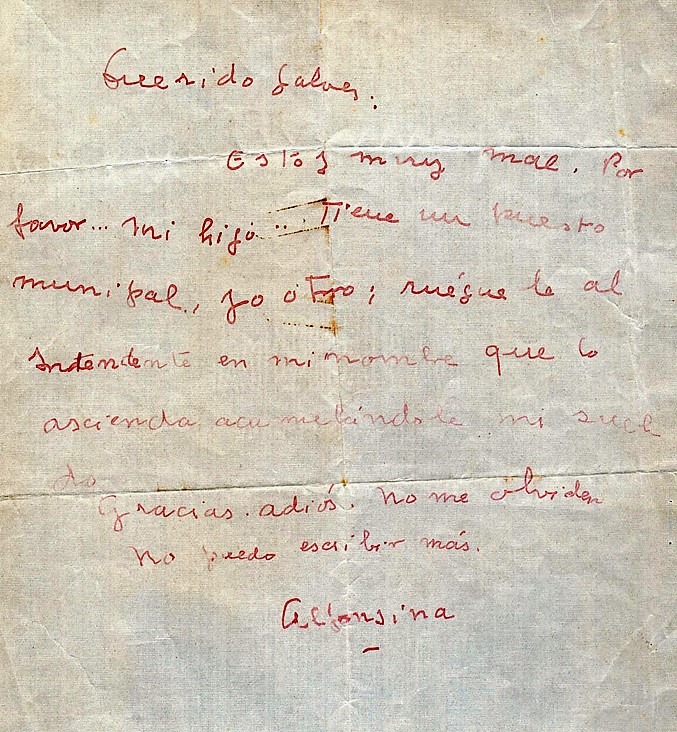 Querido Galvez.
Estoy muy mal. Por
favor... mi hijo... Tiene un puesto
munipal, yo otro; ruégue le al
Intendente en mi nombre que lo
ascienda acumulándole mi suel
do
Gracias. adiós. No me olviden
No puedo escribir más.
Alfonsina